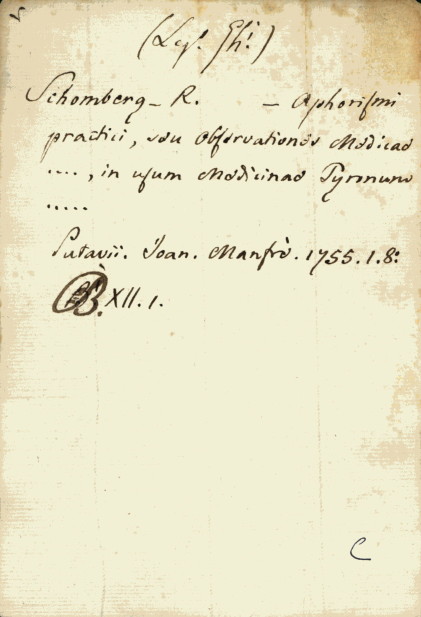 (Leg. Gh!)
Schomberg - R. - Aphorismi
practici, seu Observationes Medicae
...., in usum Medicinae Tyronum
.....
Patavii. Ioan. Manfrè. 1755. 1. 8:
B. XII. 1.
C